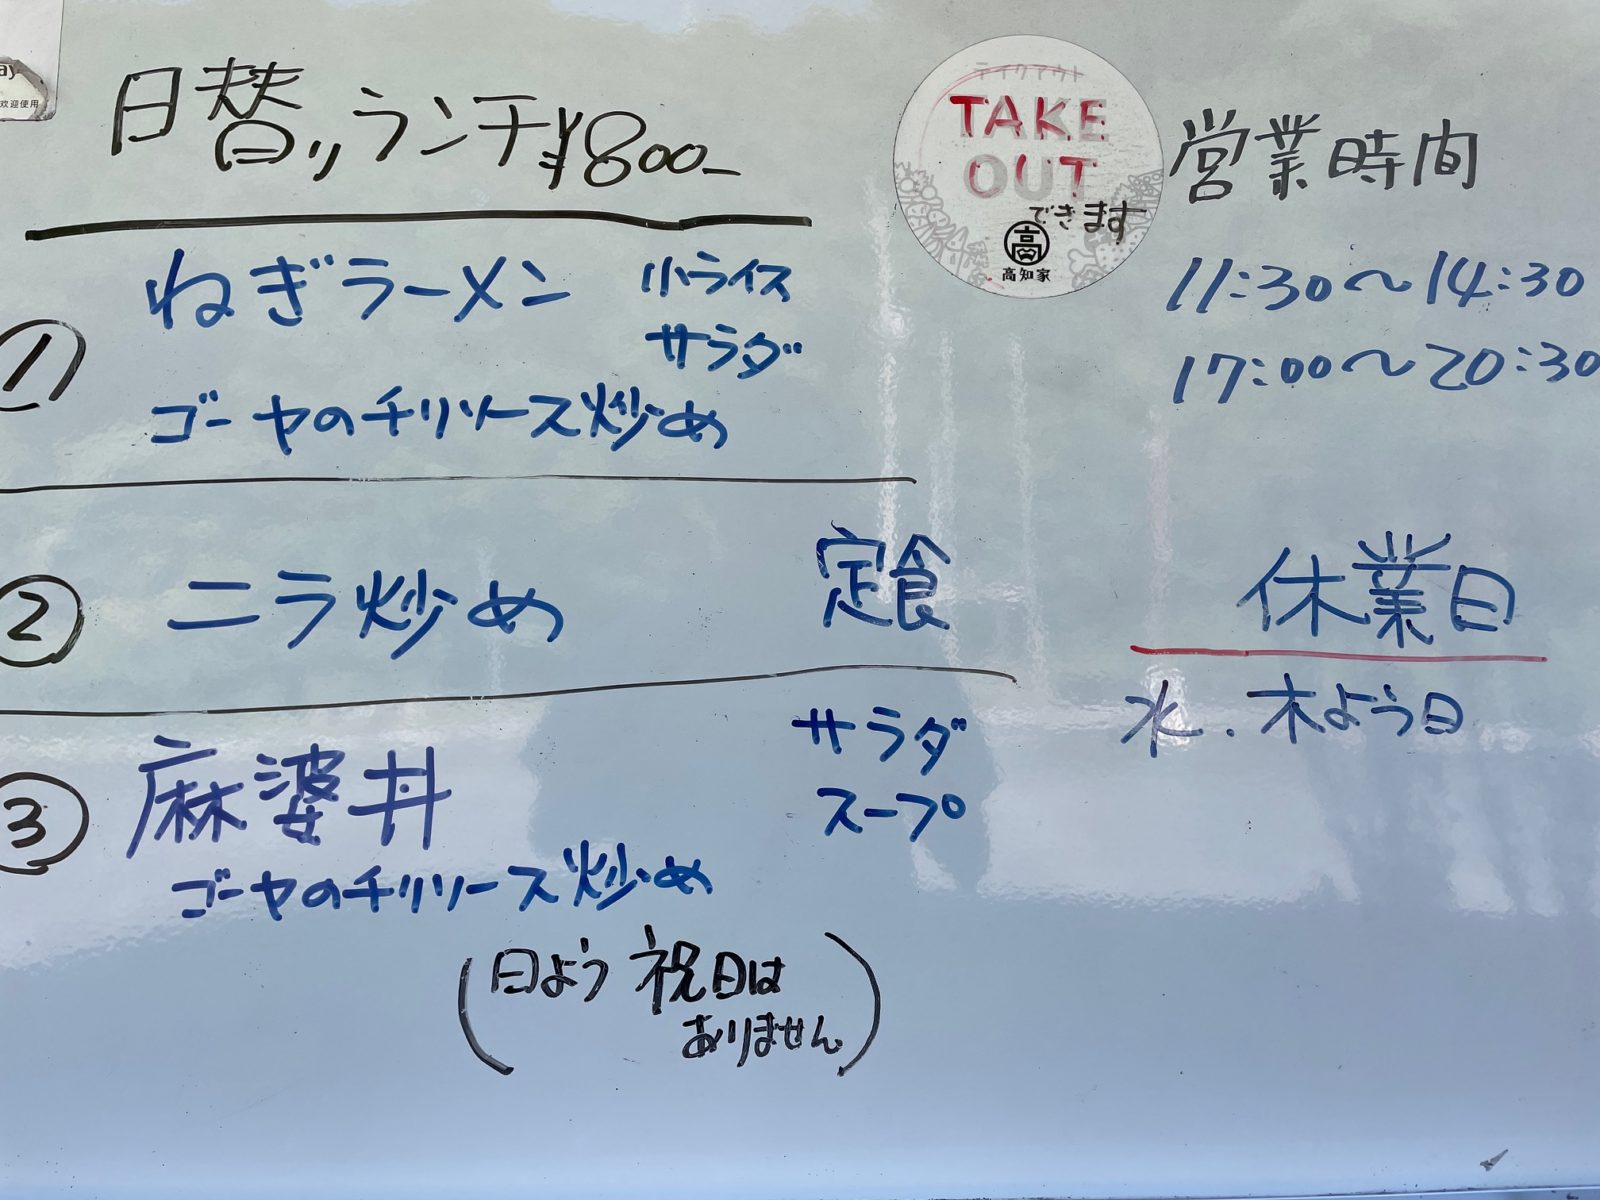 ay
欢迎使用
日替りランチ¥800-
① ねぎラーメン 小ライス
サラダ
ゴーヤのチリソース炒め
② ニラ炒め 定食
③ 麻婆丼 サラダ
スープ
ゴーヤのチリソース炒め
(日よう 祝日は
ありません)
テイクアウト
TAKE
OUT
できます
高
高知家
営業時間
11:30〜14:30
17:00〜20:30
休業日
水.木よう日